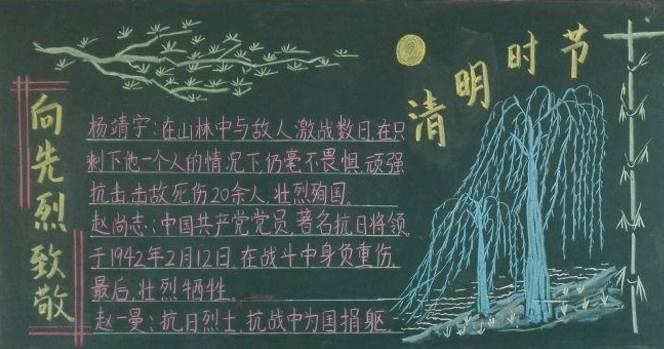 清明时节
向先烈致敬
杨靖宇:在山林中与敌人激战数日,在只
剩下他一个人的情况下,仍毫不畏惧,顽强
抗击,击敌死伤20余人,壮烈殉国。
赵尚志:中国共产党党员,著名抗日将领,
于1942年2月12日,在战斗中身负重伤,
最后,壮烈牺牲。
赵一曼:抗日烈士,抗战中为国捐躯.